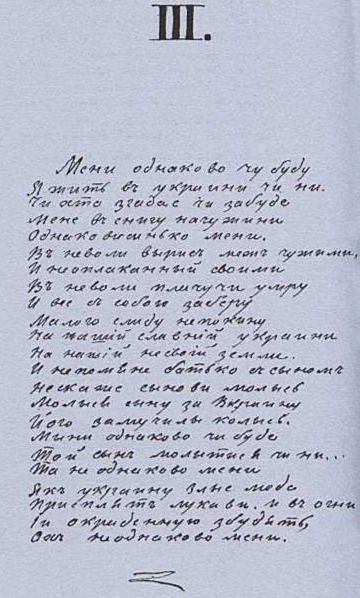 III.
Мени однаково чи буду
Я жить въ украини чи ни.
Чи хто згадае чи забуде
Мене въ снигу на чужини
Однаковисинько мени.
Въ неволи вырисъ межъ чужими,
И неоплаканный своими
Въ неволи плачучи умру
И все съ собою заберу
Малого слиду непокину
На нашій славній украини
На нашій несвоій земли.
И непомьяне батько съ сыномъ
Нескаже сынови молысь
Молысь сыну за Вкраину
Його замучилы колысь.
Мини однаково чи буде
Той сынъ молытися чи ни...
Та не однаково мени
Якъ украину злые люде
Присплять лукави, и въ огни
Іи окраденную збудять,
Охъ неоднаково мени.